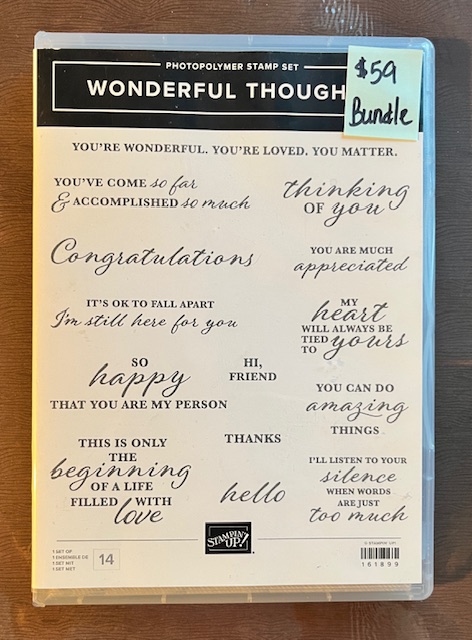 PHOTOPOLYMER STAMP SET
WONDERFUL THOUGH
$59
Bundle
YOU'RE WONDERFUL. YOU'RE LOVED. YOU MATTER.
YOU'VE COME so far
& ACCOMPLISHED so much
thinking
OF you
Congratulations
YOU ARE MUCH
appreciated
IT'S OK TO FALL APART
I'm still here for you
MY
heart
WILL ALWAYS BE
TIED
TO yours
SO
happy
THAT YOU ARE MY PERSON
HI,
FRIEND
YOU CAN DO
amazing
THINGS
THIS IS ONLY
THE
beginning
OF A LIFE
FILLED WITH
love
THANKS
hello
I'LL LISTEN TO YOUR
silence
WHEN WORDS
ARE JUST
too much
1 SET OF
1 ENSEMBLE DE
1 SET MIT
1 SET MET
14
STAMPIN' UP!
© STAMPIN' UP!
161899